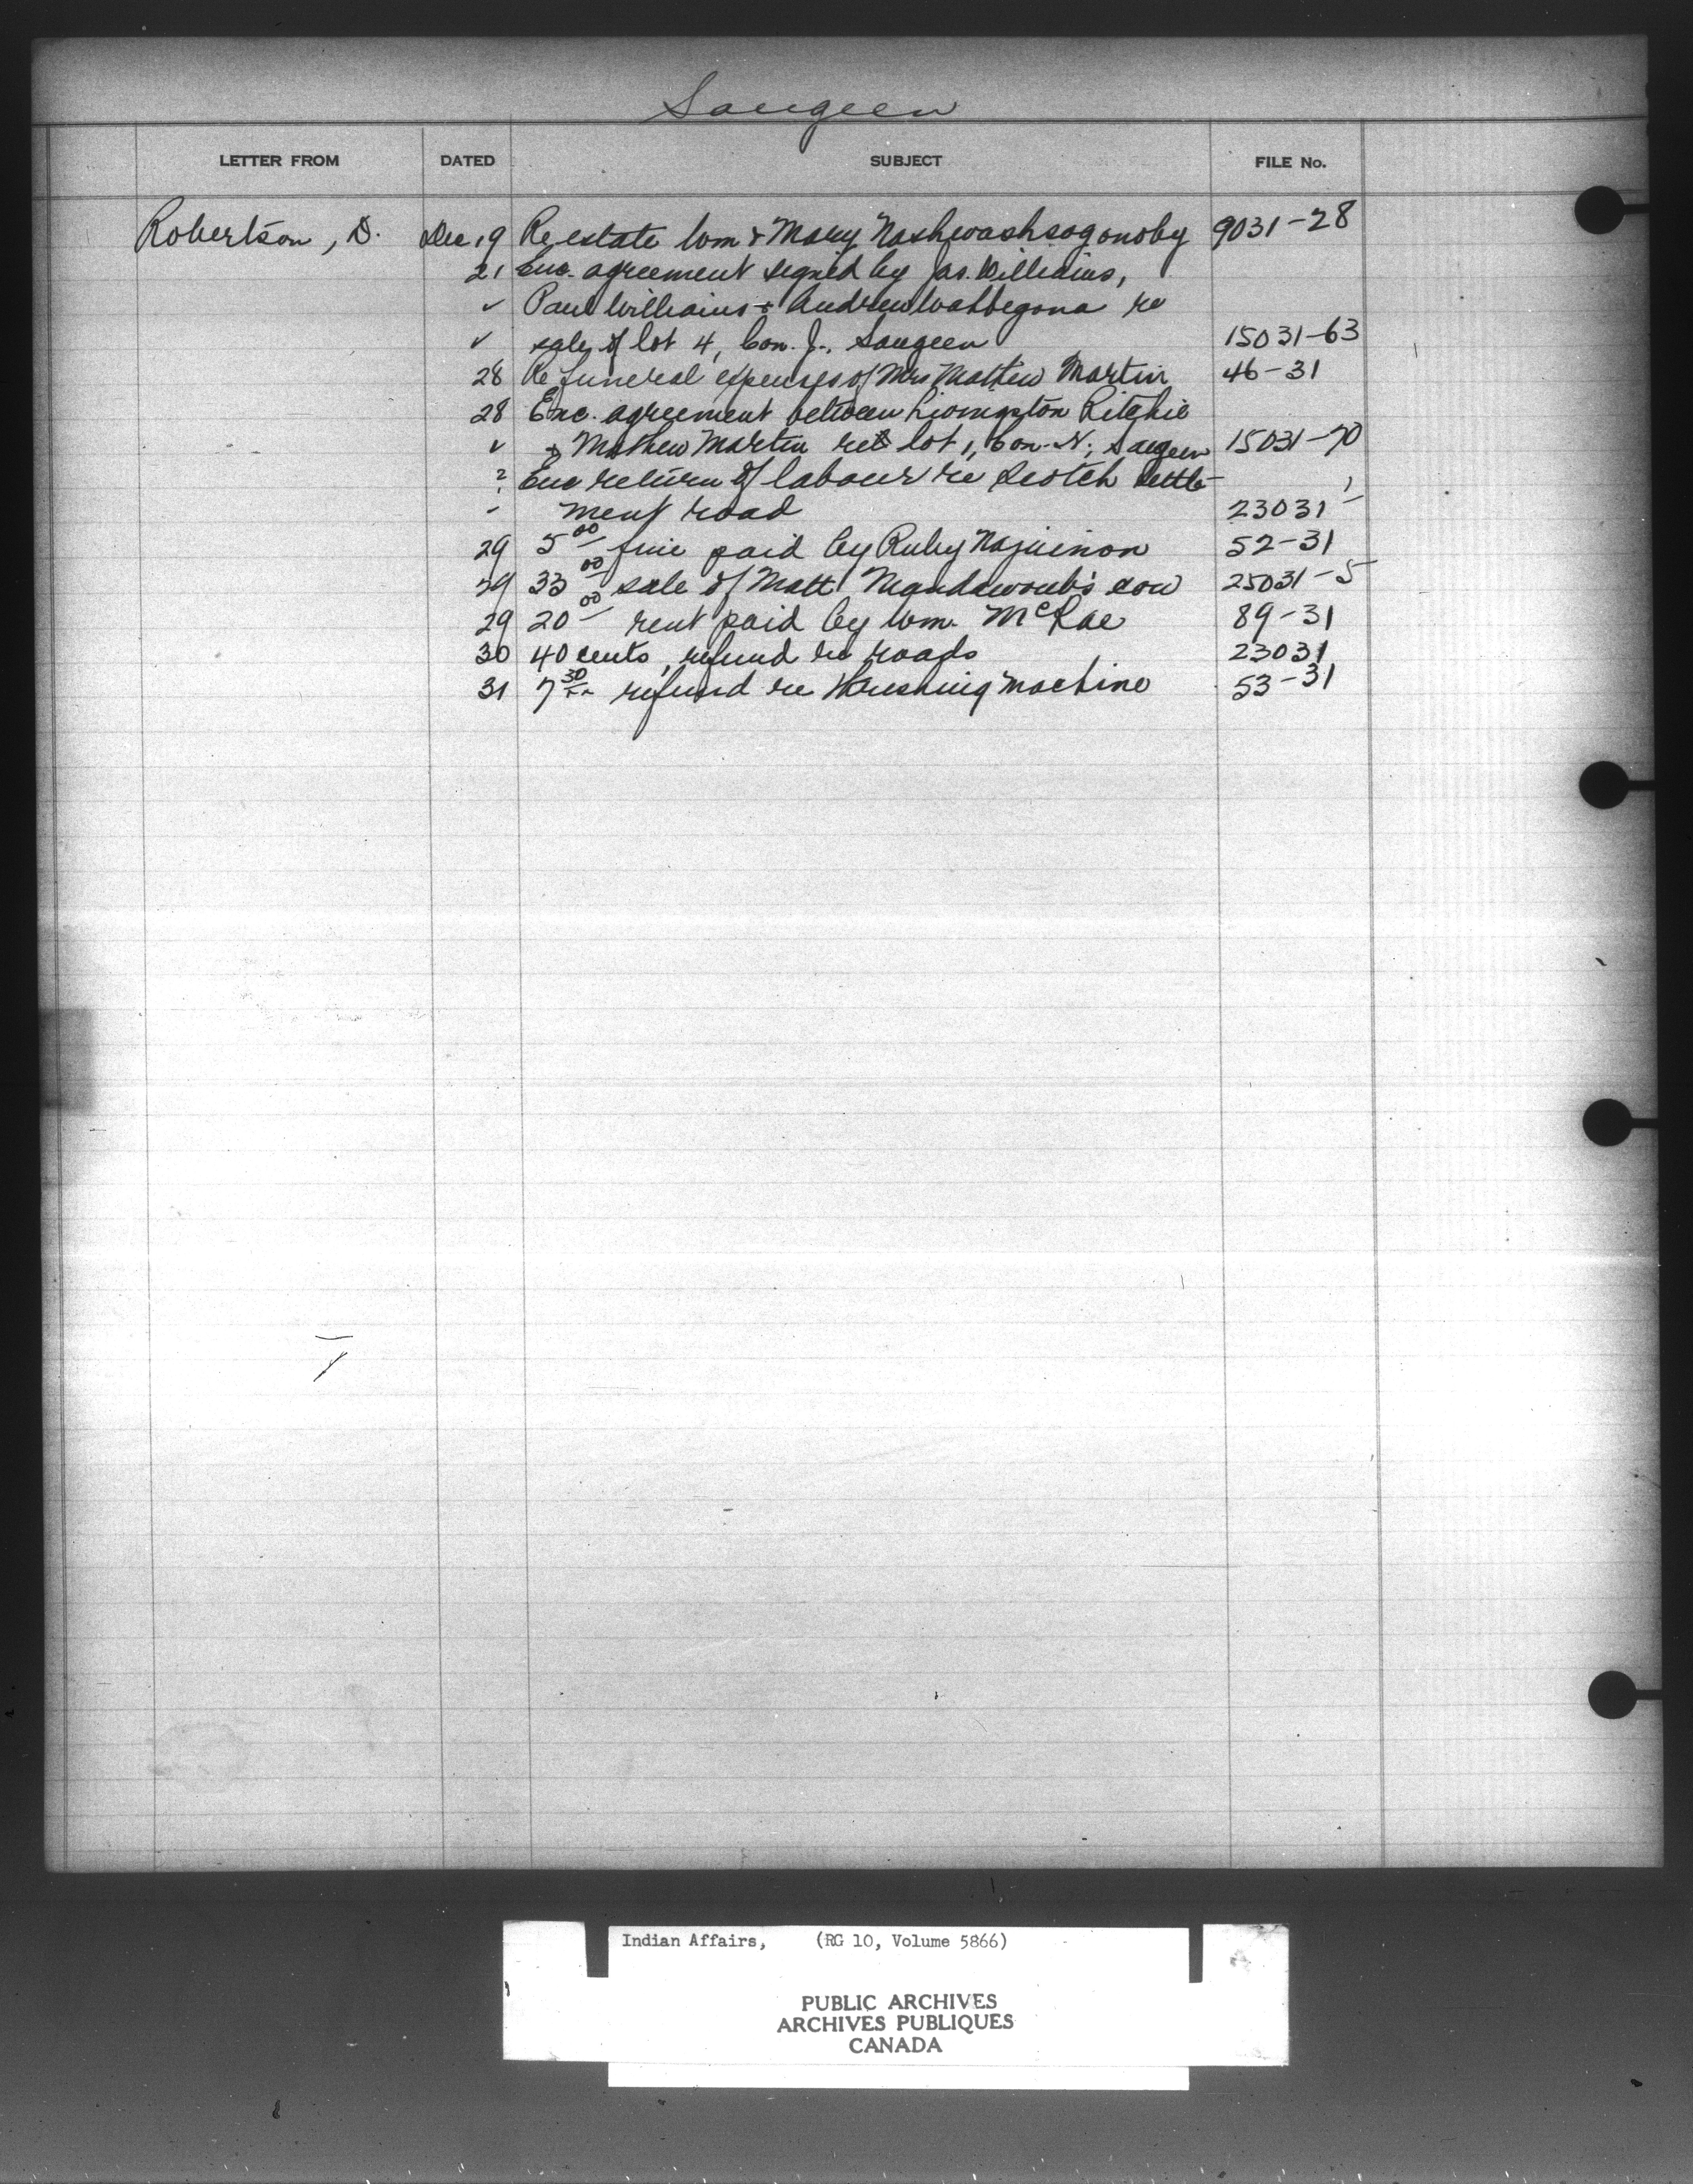 Saugeen
LETTER FROM DATED SUBJECT FILE No.
Robertson, D. Dec. 19 Re estate Wm & Mary Nashwashsogonoby 9031-28
21 Enc. agreement signed by Jas. Williams,
✓ Paul Williams & Andrew Wahbegona re
✓ sale of lot 4, Con. J., Saugeen 15031-63
28 Re funeral expenses of Mrs Mathew Martin 46-31
28 Enc. agreement between Livingston Ritchie
✓ & Mathew Martin re lot 1, Con. N; Saugeen 15031-70
? Enc return of labour re Scotch Settle-
ment road 23031
29 5 00 fine paid by Ruby 52-31
29 33 00 sale of Matt cow 25031-5
29 20 00 rent paid by Wm. McRae 89-31
30 40 cents, refund re roads 23031
31 7 30 refund re thrashing machine 53-31
Indian Affairs, (RG 10, Volume 5866)
PUBLIC ARCHIVES
ARCHIVES PUBLIQUES
CANADA